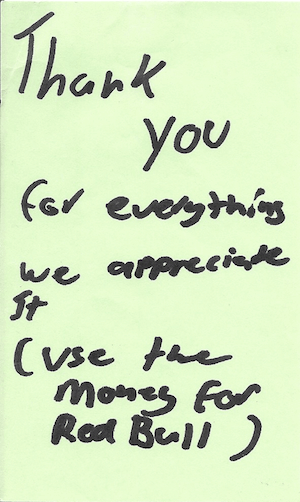 Thank
you
for everything
we appreciate
It
(use the
Money for
Red Bull)